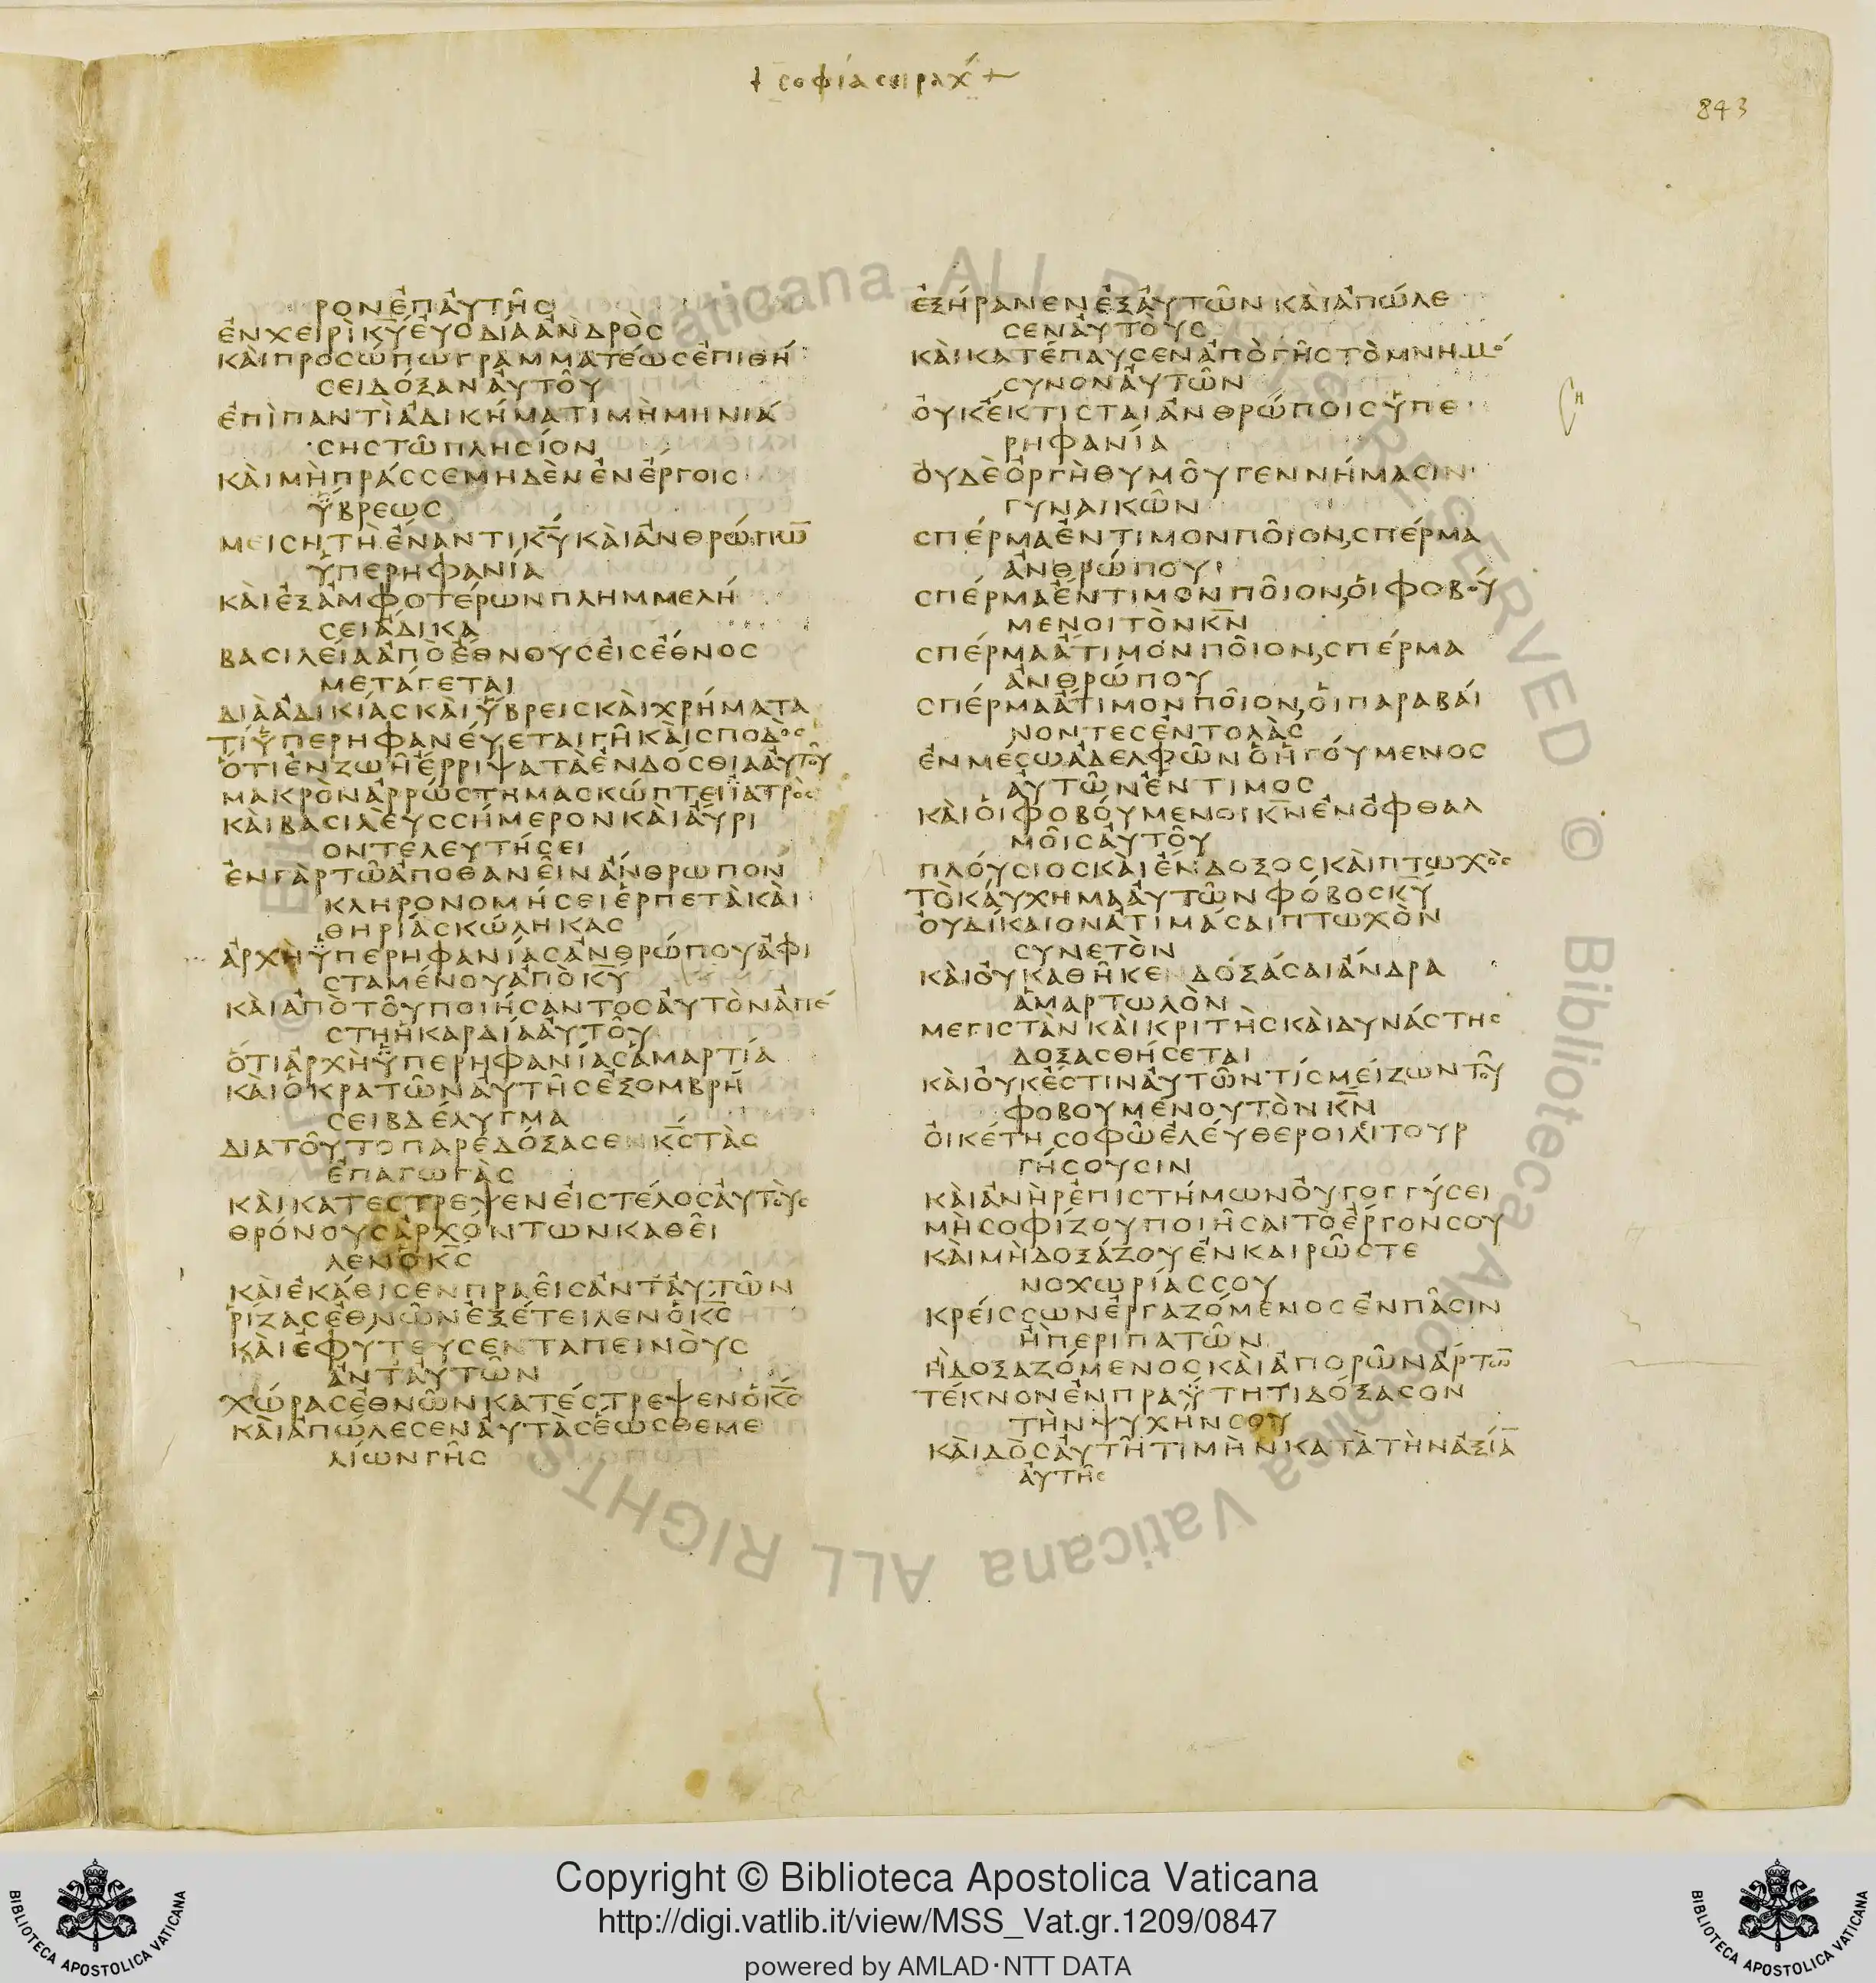 + σοφία σειράχ +
843
ΡΟΝ ἘΠ ἈΥΤΗ͂Σ
ἘΝ ΧΕΙΡῚ Κ̅Υ̅ ἘΥΟΔΊΑ ἈΝΔΡῸΣ
ΚΑῚ ΠΡΟΣΏΠΩ ΓΡΑΜΜΑΤΈΩΣ ἘΠΙΘΉ
ΣΕΙ ΔΌΞΑΝ ἈΥΤΟΥ͂
ἘΠῚ ΠΑΝΤῚ ἈΔΙΚΉΜΑΤΙ ΜῊ ΜΗΝΙΆ
ΣΗΣ ΤΩ͂ ΠΛΗΣΊΟΝ
ΚΑῚ ΜῊ ΠΡΆΣΣΕ ΜΗΔῈΝ ἘΝ ἜΡΓΟΙΣ
ὝΒΡΕΩΣ
ΜΕΙΣΗΤῊ ἜΝΑΝΤΙ Κ̅Υ̅ ΚΑῚ ἈΝΘΡΏΠΩ̅
ὙΠΕΡΗΦΑΝΊΑ
ΚΑῚ ἘΞ ἈΜΦΟΤΈΡΩΝ ΠΛΗΜΜΕΛΉ
ΣΕΙ ἌΔΙΚΑ
ΒΑΣΙΛΕΊΑ ἈΠῸ ἜΘΝΟΥΣ ἘΙΣ ἜΘΝΟΣ
ΜΕΤΆΓΕΤΑΙ
ΔΙᾺ ἈΔΙΚΊΑΣ ΚΑῚ ὝΒΡΕΙΣ ΚΑῚ ΧΡΉΜΑΤΑ
ΤΊ ὙΠΕΡΗΦΑΝΕΎΕΤΑΙ ΓΗ͂ ΚΑῚ ΣΠΟΔῸΣ
ὍΤΙ ἘΝ ΖΩΗ͂ ἜΡΡΙΨΑ ΤᾺ ἘΝΔΌΣΘΙΑ ἈΥΤΟΥ͂
ΜΑΚΡῸΝ ἈΡΡΏΣΤΗΜΑ ΣΚΏΠΤΕΙ ἸΑΤΡῸΣ
ΚΑῚ ΒΑΣΙΛΕΥΣ ΣΉΜΕΡΟΝ ΚΑῚ ἌΥΡΙ
ΟΝ ΤΕΛΕΥΤΉΣΕΙ
ἘΝ ΓᾺΡ ΤΩ͂ ἈΠΟΘΑΝΕΙ͂Ν ἌΝΘΡΩΠΟΝ
ΚΛΗΡΟΝΟΜΉΣΕΙ ἙΡΠΕΤᾺ ΚΑῚ
ΘΗΡΊΑ ΣΚΏΛΗΚΑΣ
ἈΡΧῊ ὙΠΕΡΗΦΑΝΊΑΣ ἈΝΘΡΏΠΟΥ ἈΦΙ
ΣΤΑΜΈΝΟΥ ἈΠῸ Κ̅Υ̅
ΚΑῚ ἈΠῸ ΤΟΥ͂ ΠΟΙΉΣΑΝΤΟΣ ἈΥΤῸΝ ἈΠΈ
ΣΤΗ Ἡ ΚΑΡΔΊΑ ἈΥΤΟΥ͂
ὍΤΙ ἈΡΧῊ ὙΠΕΡΗΦΑΝΊΑΣ ἉΜΑΡΤΊΑ
ΚΑΙ Ὁ ΚΡΑΤΩ͂Ν ἈΥΤΗ͂Σ ἘΞΟΜΒΡΉ
ΣΕΙ ΒΔΈΛΥΓΜΑ
ΔΙΑ ΤΟΥ͂ΤΟ ΠΑΡΕΔΌΞΑΣΕΝ Κ̅Σ̅ ΤᾺΣ
ἘΠΑΓΩΓᾺΣ
ΚΑῚ ΚΑΤΈΣΤΡΕΨΕΝ ἘΙΣ ΤΈΛΟΣ ἈΥΤΟῪΣ
ΘΡΌΝΟΥΣ ἈΡΧΌΝΤΩΝ ΚΑΘΕΙ͂
ΛΕΝ Ὁ Κ̅Σ̅
ΚΑῚ ἘΚΆΘΙΣΕΝ ΠΡΑΕΙ͂Σ ἈΝΤ ἈΥΤΩ͂Ν
ῬΊΖΑΣ ἘΘΝΩ͂Ν ἘΞΈΤΕΙΛΕΝ Ὁ Κ̅Σ̅
ΚΑῚ ἘΦΎΤΕΥΣΕΝ ΤΑΠΕΙΝΟῪΣ
ἈΝΤ ἈΥΤΩ͂Ν
ΧΏΡΑΣ ἘΘΝΩ͂Ν ΚΑΤΈΣΤΡΕΨΕΝ Ὁ Κ̅Σ̅
ΚΑῚ ἈΠΏΛΕΣΕΝ ἈΥΤᾺΣ ἝΩΣ ΘΕΜΕ
ΛΊΩΝ ΓΗ͂Σ
ἘΞΉΡΑΝΕΝ ἘΞ ἈΥΤΩ͂Ν ΚΑῚ ἈΠΏΛΕ
ΣΕΝ ἈΥΤΟῪΣ
ΚΑῚ ΚΑΤΈΠΑΥΣΕΝ ἈΠῸ ΓΗ͂Σ ΤῸ ΜΝΗΜΌ
ΣΥΝΟΝ ἈΥΤΩ͂Ν
ὈΥΚ ἜΚΤΙΣΤΑΙ ἈΝΘΡΏΠΟΙΣ ὙΠΕ
ΡΗΦΑΝΊΑ
ὈΥΔῈ ὈΡΓῊ ΘΥΜΟΥ͂ ΓΕΝΝΉΜΑΣΙΝ
ΓΥΝΑΙΚΩ͂Ν
ΣΠΈΡΜΑ ἜΝΤΙΜΟΝ ΠΟΙ͂ΟΝ, ΣΠΈΡΜΑ
ἈΝΘΡΏΠΟΥ
ΣΠΈΡΜΑ ἜΝΤΙΜΟΝ ΠΟΙ͂ΟΝ, ὉΙ ΦΟΒΟΎ
ΜΕΝΟΙ ΤῸΝ Κ̅Ν̅
ΣΠΈΡΜΑ ἌΤΙΜΟΝ ΠΟΙ͂ΟΝ, ΣΠΈΡΜΑ
ἈΝΘΡΏΠΟΥ
ΣΠΈΡΜΑ ἌΤΙΜΟΝ ΠΟΙ͂ΟΝ, ὉΙ ΠΑΡΑΒΑΊ
ΝΟΝΤΕΣ ἘΝΤΟΛᾺΣ
ἘΝ ΜΈΣΩ ἈΔΕΛΦΩ͂Ν Ὁ ἩΓΟΎΜΕΝΟΣ
ἈΥΤΩ͂Ν ἜΝΤΙΜΟΣ
ΚΑΙ ὉΙ ΦΟΒΟΎΜΕΝΟΙ Κ̅Ν̅ ἘΝ ὈΦΘΑΛ
ΜΟΙ͂Σ ἈΥΤΟΥ͂
ΠΛΟΎΣΙΟΣ ΚΑῚ ἜΝΔΟΞΟΣ ΚΑῚ ΠΤΩΧῸΣ
ΤῸ ΚΑΎΧΗΜΑ ἈΥΤΩ͂Ν ΦΌΒΟΣ Κ̅Υ̅
ὈΥ ΔΊΚΑΙΟΝ ἈΤΙΜΆΣΑΙ ΠΤΩΧῸΝ
ΣΥΝΕΤῸΝ
ΚΑῚ ὈΥ ΚΑΘΗ͂ΚΕΝ ΔΟΞΆΣΑΙ ἌΝΔΡΑ
ἉΜΑΡΤΩΛῸΝ
ΜΕΓΙΣΤᾺΝ ΚΑῚ ΚΡΙΤῊΣ ΚΑῚ ΔΥΝΆΣΤΗΣ
ΔΟΞΑΣΘΉΣΕΤΑΙ
ΚΑῚ ὈΥΚ ἜΣΤΙΝ ἈΥΤΩ͂Ν ΤΊΣ ΜΕΊΖΩΝ ΤΟΥ͂
ΦΟΒΟΥΜΈΝΟΥ ΤῸΝ Κ̅Ν̅
ὈΙΚΈΤΗ ΣΟΦΩ͂ ἘΛΕΎΘΕΡΟΙ ΛΙΤΟΥΡ
ΓΉΣΟΥΣΙΝ
ΚΑῚ ἈΝῊΡ ἘΠΙΣΤΉΜΩΝ ὈΥ ΓΟΓΓΎΣΕΙ
ΜῊ ΣΟΦΊΖΟΥ ΠΟΙΗ͂ΣΑΙ ΤῸ ἜΡΓΟΝ ΣΟΥ
ΚΑῚ ΜῊ ΔΟΞΆΖΟΥ ἘΝ ΚΑΙΡΩ͂ ΣΤΕ
ΝΟΧΩΡΊΑΣ ΣΟΥ
ΚΡΕΊΣΣΩΝ ἘΡΓΑΖΌΜΕΝΟΣ ἘΝ ΠΑ͂ΣΙΝ
Ἢ ΠΕΡΙΠΑΤΩ͂Ν
Ἢ ΔΟΞΑΖΌΜΕΝΟΣ ΚΑῚ ἈΠΟΡΩ͂Ν ἌΡΤΩ̅
ΤΈΚΝΟΝ ἘΝ ΠΡΑΫΤΗΤΙ ΔΌΞΑΣΟΝ
ΤῊΝ ΨΥΧΉΝ ΣΟΥ
ΚΑῚ ΔῸΣ ἈΥΤΗ͂ ΤΙΜῊΝ ΚΑΤᾺ ΤῊΝ ἈΞΊΑ̅
ἈΥΤΗ͂Σ
Copyright © Biblioteca Apostolica Vaticana
http://digi.vatlib.it/view/MSS_Vat.gr.1209/0847
powered by AMLAD·NTT DATA
BIBLIOTECA APOSTOLICA VATICANA
BIBLIOTECA APOSTOLICA VATICANA